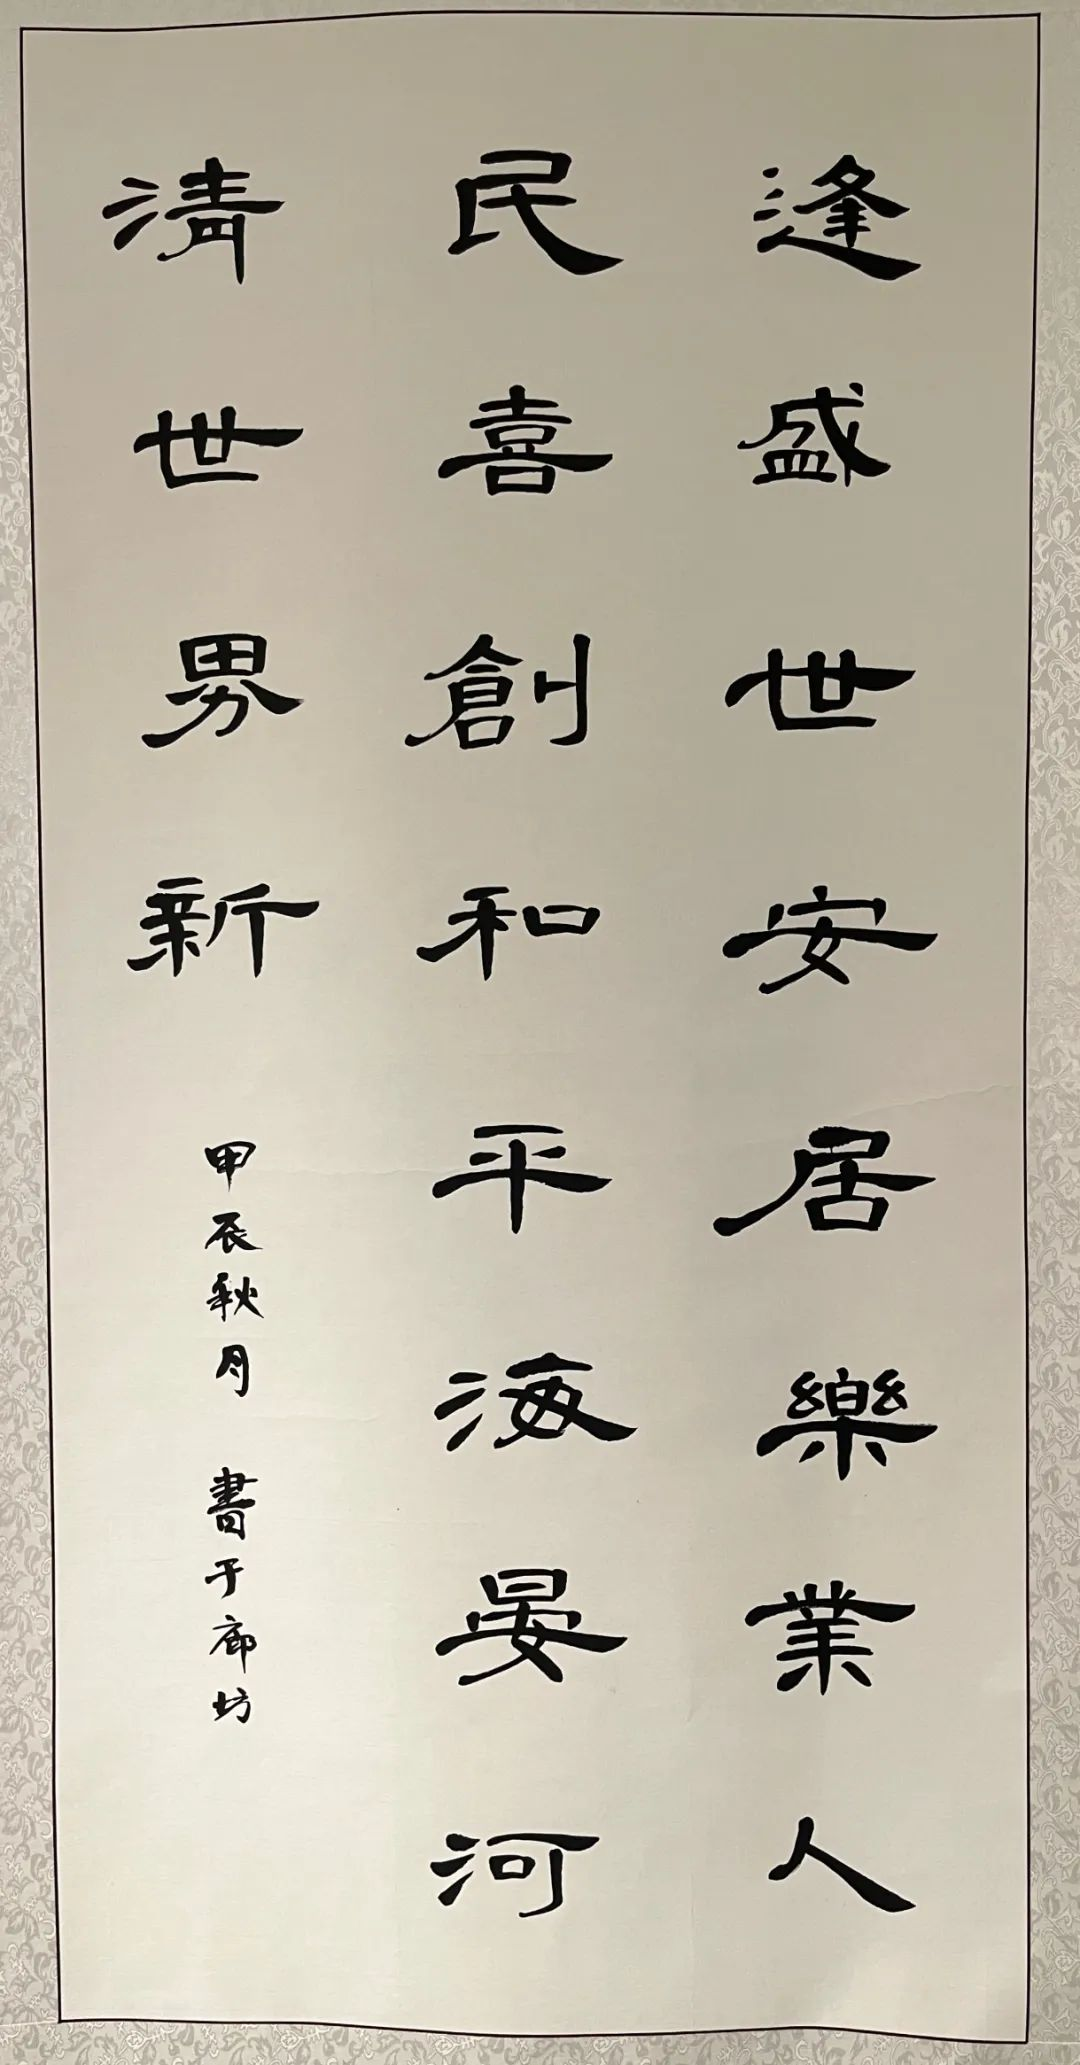 逢盛世安居樂業人
民喜創和平海晏河
清世界新
甲辰秋月 書于廊坊